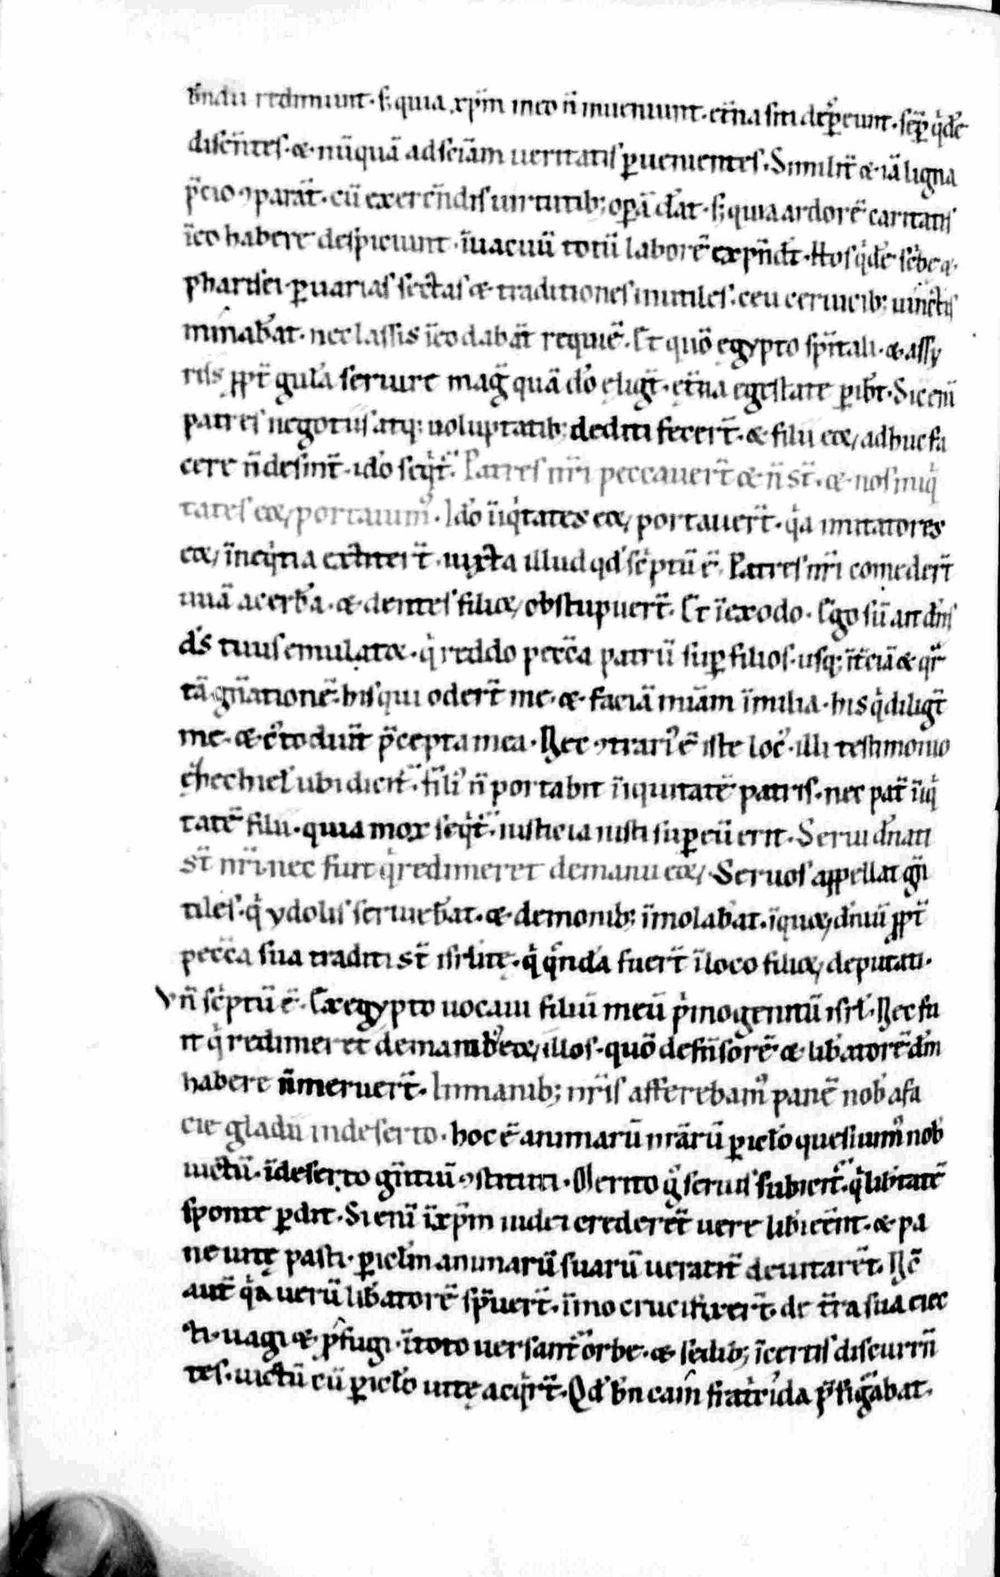 bn̄dū redimunt· s; quia xp̄m in eo n̄ inueniunt· et̄na siti dep̄eunt· sēp q̄dē
discn̄tes· & nūquā ad sciām ueritatis p̄uenientes· Similit̄ & iā ligna
p̄cio ꝯparāt̄· cū exercn̄dis uirtutib; op̄ā dāt· s; quia ardorē caritatis
īeo habere despiciunt· īuacuū totū laborē expn̄dt̄· Hos q̄dē scbe &
pharisei· p̄ uarias sectas & traditiones inutiles· ceu ceruicib; uinctis
minabāt· nec lassis īeo dabāt̄ requiē· Et quō egypto sp̄itali· & assy
riis p̄pt̄ gulā seruire mag̃ quā dō eligt̄· et̄na egestate p̄ibt̄· Sic eni̅
patres negotiis atq; uoluptatib; dediti fecert̄· & filii eoꝝ adhuc fa
cere n̄ desint̄· idō seqt̄ʳ· Patres nr̄i peccauert̄ & n̄ st̄· & nos iniq
tates eoꝝ portauim᾿· Idō iiq̄tates eoꝝ portauert̄· q̄a imitatores
eoꝝ īneq̄tia extitert̄· iuxta illud qd̄ scptū ē· Patres nr̄i comedert̄
uuā acerbā· & dentes filioꝝ obstupuert̄· Et īexodo· Ego sū ait dn̄s
ds̄ tuus emulatoꝛ· q̄ reddo pecc̄a patrū sup̄ filios· usq; īt̄ciā & qr̄
tā gn̄ationē· his qui odert̄ me· & faciā miā̄m īmilia· his q̄ diligt̄
me· & c̄todiut̄ p̄cepta mea· Nec ꝯtrari᾿ ē iste loc᾿· illi testimonio
ezechiel᾿ ubi dicit̄ʳ· fili᾿ n̄ portabit īiquitatē patris· nec pat̄ īiq
tatē filii· quia mox seqt̄ʳ· iusticia iusti sup̄ eū erit· Serui dn̄ati
st̄ nr̄i· nec fuit q̄ redimeret de manu eoꝝ· Seruos appellat gn̄
tiles· q̄ ydolis seruiebāt· & demonib; īmolabāt· īquoꝝ dn̄iū p̄pt̄
pecc̄a sua traditi st̄ isrl̄itę· q̄ q̄ndā fuert̄ īloco filioꝝ deputati·
Vn̄ scptū ē· Ex egypto uocaui filiū meū p̄mogenitū isrl̄· Nec fu
it q̄ redimeret de manib᾿ eoꝝ illos· quō defn̄sorē & libatorē dm̄
habere n̄ meruert̄· In manib; nr̄is afferebam᾿ panē nob̄ a fa
cie gladii in deserto· hoc ē animarū nr̄ārū p̄iclō quesiuim᾿ nob̄
uictū· īdeserto gn̄tiū ꝯstituti· Merito g̊ seruis subicit̄ʳ· q̄ libtatē
sponte p̄dit· Si enī īxp̄m iudei crederet̄ uere libi cēnt· & pa
ne uitę pasti· p̄iclm̄ animarū suarū ueracit̄ deuitarēt̄· Nc̄
aut̄ q̄a uerū libatorē sp̄uert̄· īmo crucifixert̄· de t̄ra sua eiec
ti· uagi & p̄fugi· ītoto uersant̄ʳ orbe· & sedib; īcertis discurrn̄
tes· uictū cū p̄iclō uitę acq̄rt̄· Qd̄ bn̄ caim̄ fratrīda p̄figāabat·